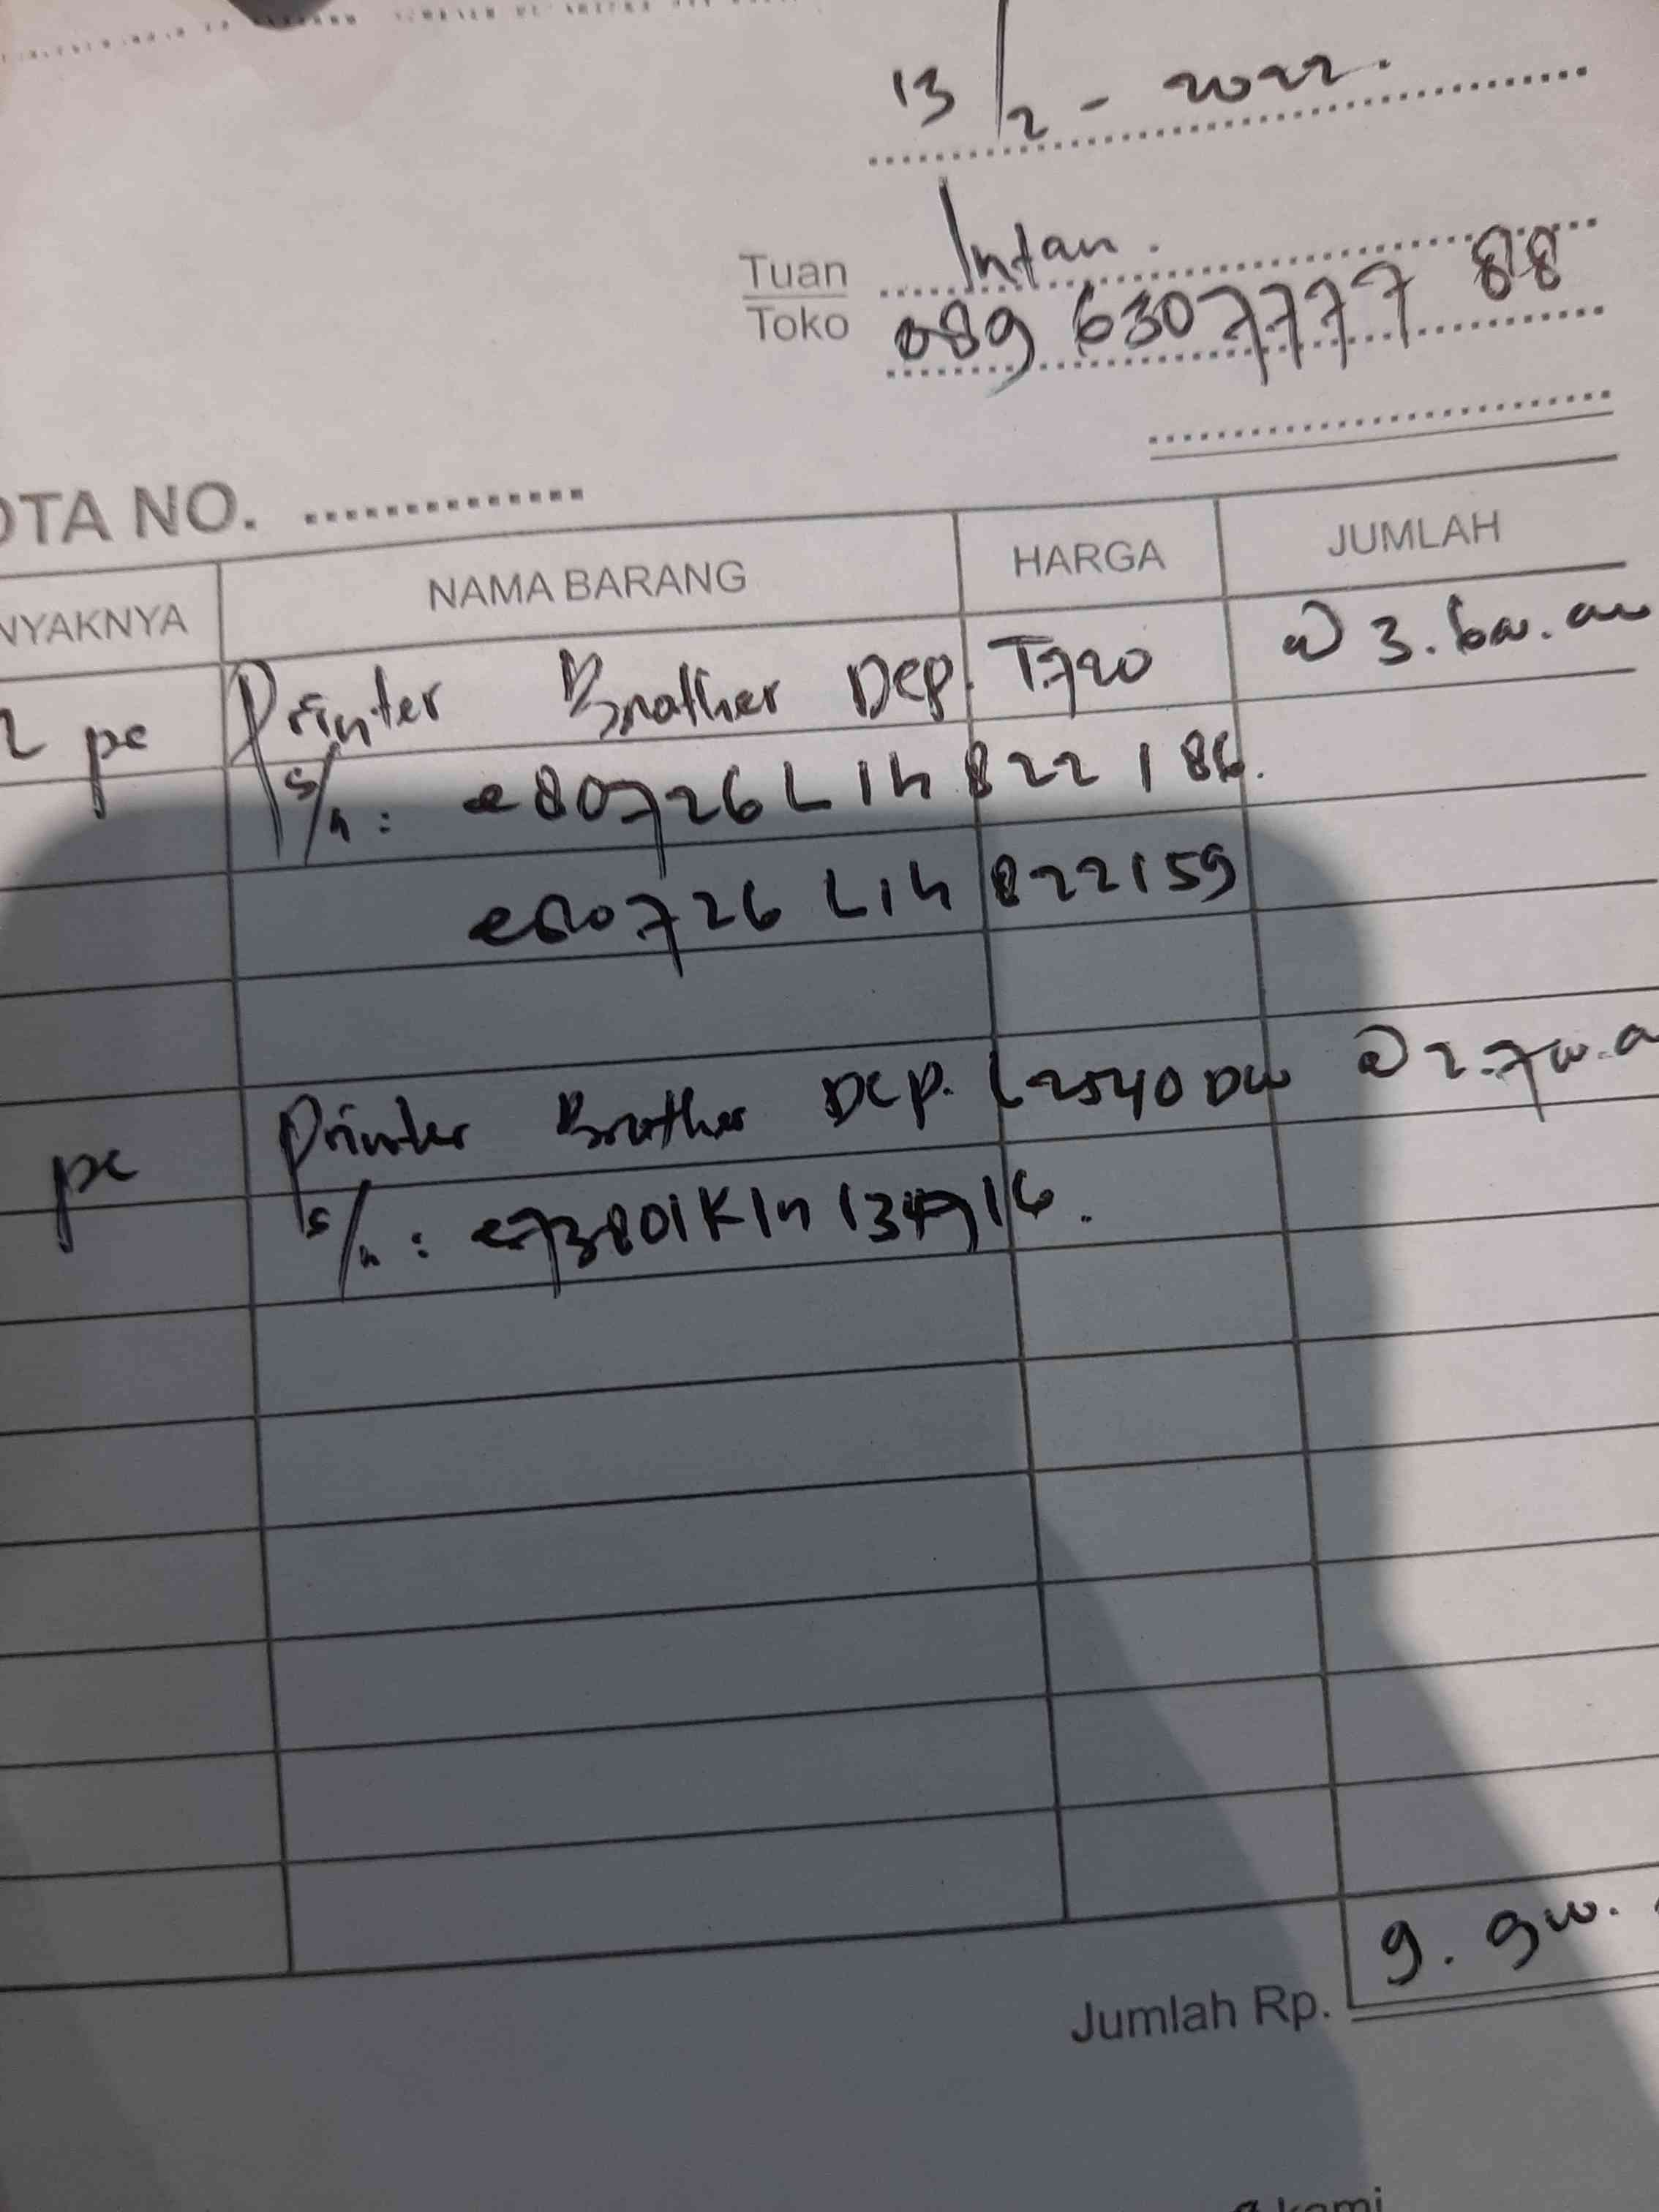 13/2 - 2022.
Tuan Intan.
Toko 089 6307777 88
OTA NO. ..............
NYAKNYA NAMA BARANG HARGA JUMLAH
2 pc Printer Brother Dcp. T720 @ 3.600.000
s/n: e80726L1h822186.
e80726L1h822159
pc Printer Brother Dcp. L2540DW @ 2.700.0
s/n: e73801K1n134716.
Jumlah Rp. 9.900.
kami